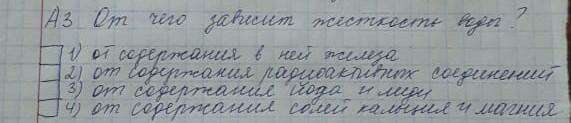 А3 От чего зависит жесткость воды?
1) от содержания в ней железа
2) от содержания радиоактивных соединений
3) от содержания йода и меди
4) от содержания солей кальция и магния